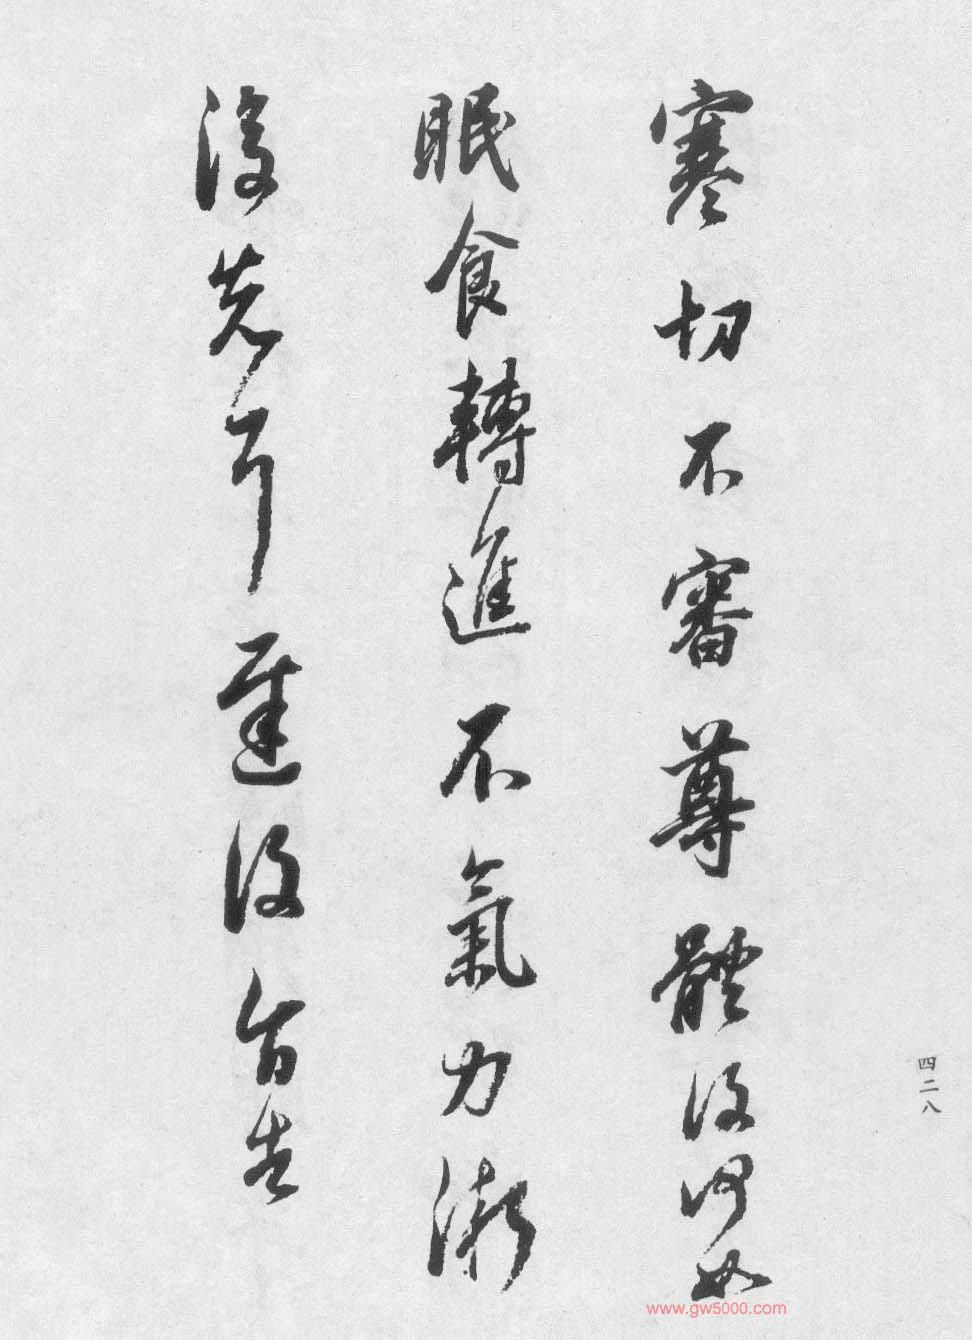 寒切不審尊體後何如
眠食轉進不氣力漸
復先耳遲後旨告
四二八
www.gw5000.com